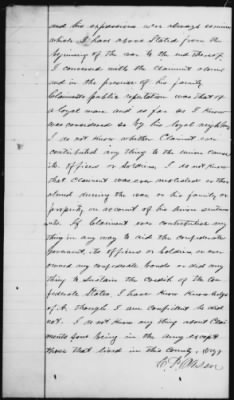 and his expressions were always common
which I have above stated from the
beginning of the war to the end thereof.
I conversed with the claimant alone
and in the presence of his family
Claimants public reputation was that of
a loyal man and so far as I know
was considered so by his loyal neighbors
I do not know whether Claimant ever
contributed any thing to the union cause
its officers or soldiers. I do not know
that Claimant was ever molested or thre
atened during the war or his family or
property on account of his union sentime
nts. If Claimant ever contributed any
thing in any way to aid the confederate
Government, its officers or soldiers or ever
owned any confederate bonds or did any
thing to sustain the credit of the con
federate States, I have know knowledge
of it, though I am confident he did
not. I do not know any thing about Clai
mants sons being in the army except
those that lived in this county.